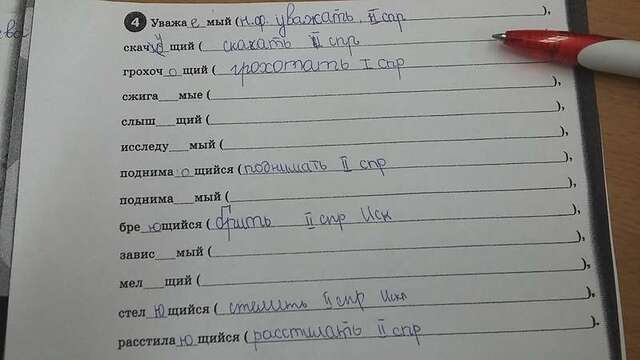 4 Уважае мый (н.ф. уважать, II спр ),
скачу щий ( скакать II спр
грохоч о щий ( грохотать I спр
сжига___мые (____),
слыш___щий (____),
исследу___мый (____),
поднима ю щийся (поднимать II спр ),
поднима___мый (____),
бре ющийся (брить II спр Иск ),
завис___мый (____),
мел___щий (____),
стел ю щийся ( стелить II спр Искл ),
расстила ю щийся (расстилать II спр ).